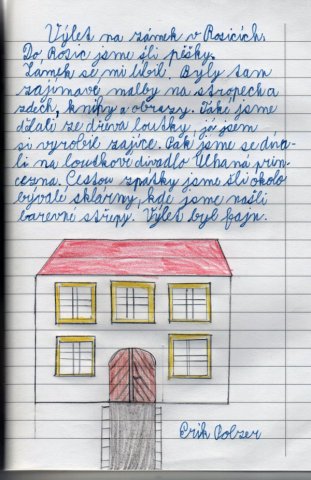 Výlet na zámek v Rosicích.
Do Rosic jsme šli pěšky.
Zámek se mi líbil. Byly tam
zajímavé malby na stropech a
zdech, knihy a obrazy. Také jsme
dělali ze dřeva loutky, já jsem
si vyrobil zajíce. Pak jsme se díva-
li na loutkové divadlo Uchaná prin-
cezna. Cestou zpátky jsme šli okolo
bývalé sklárny, kde jsme našli
barevné střepy. Výlet byl fajn.
Erik Polzer